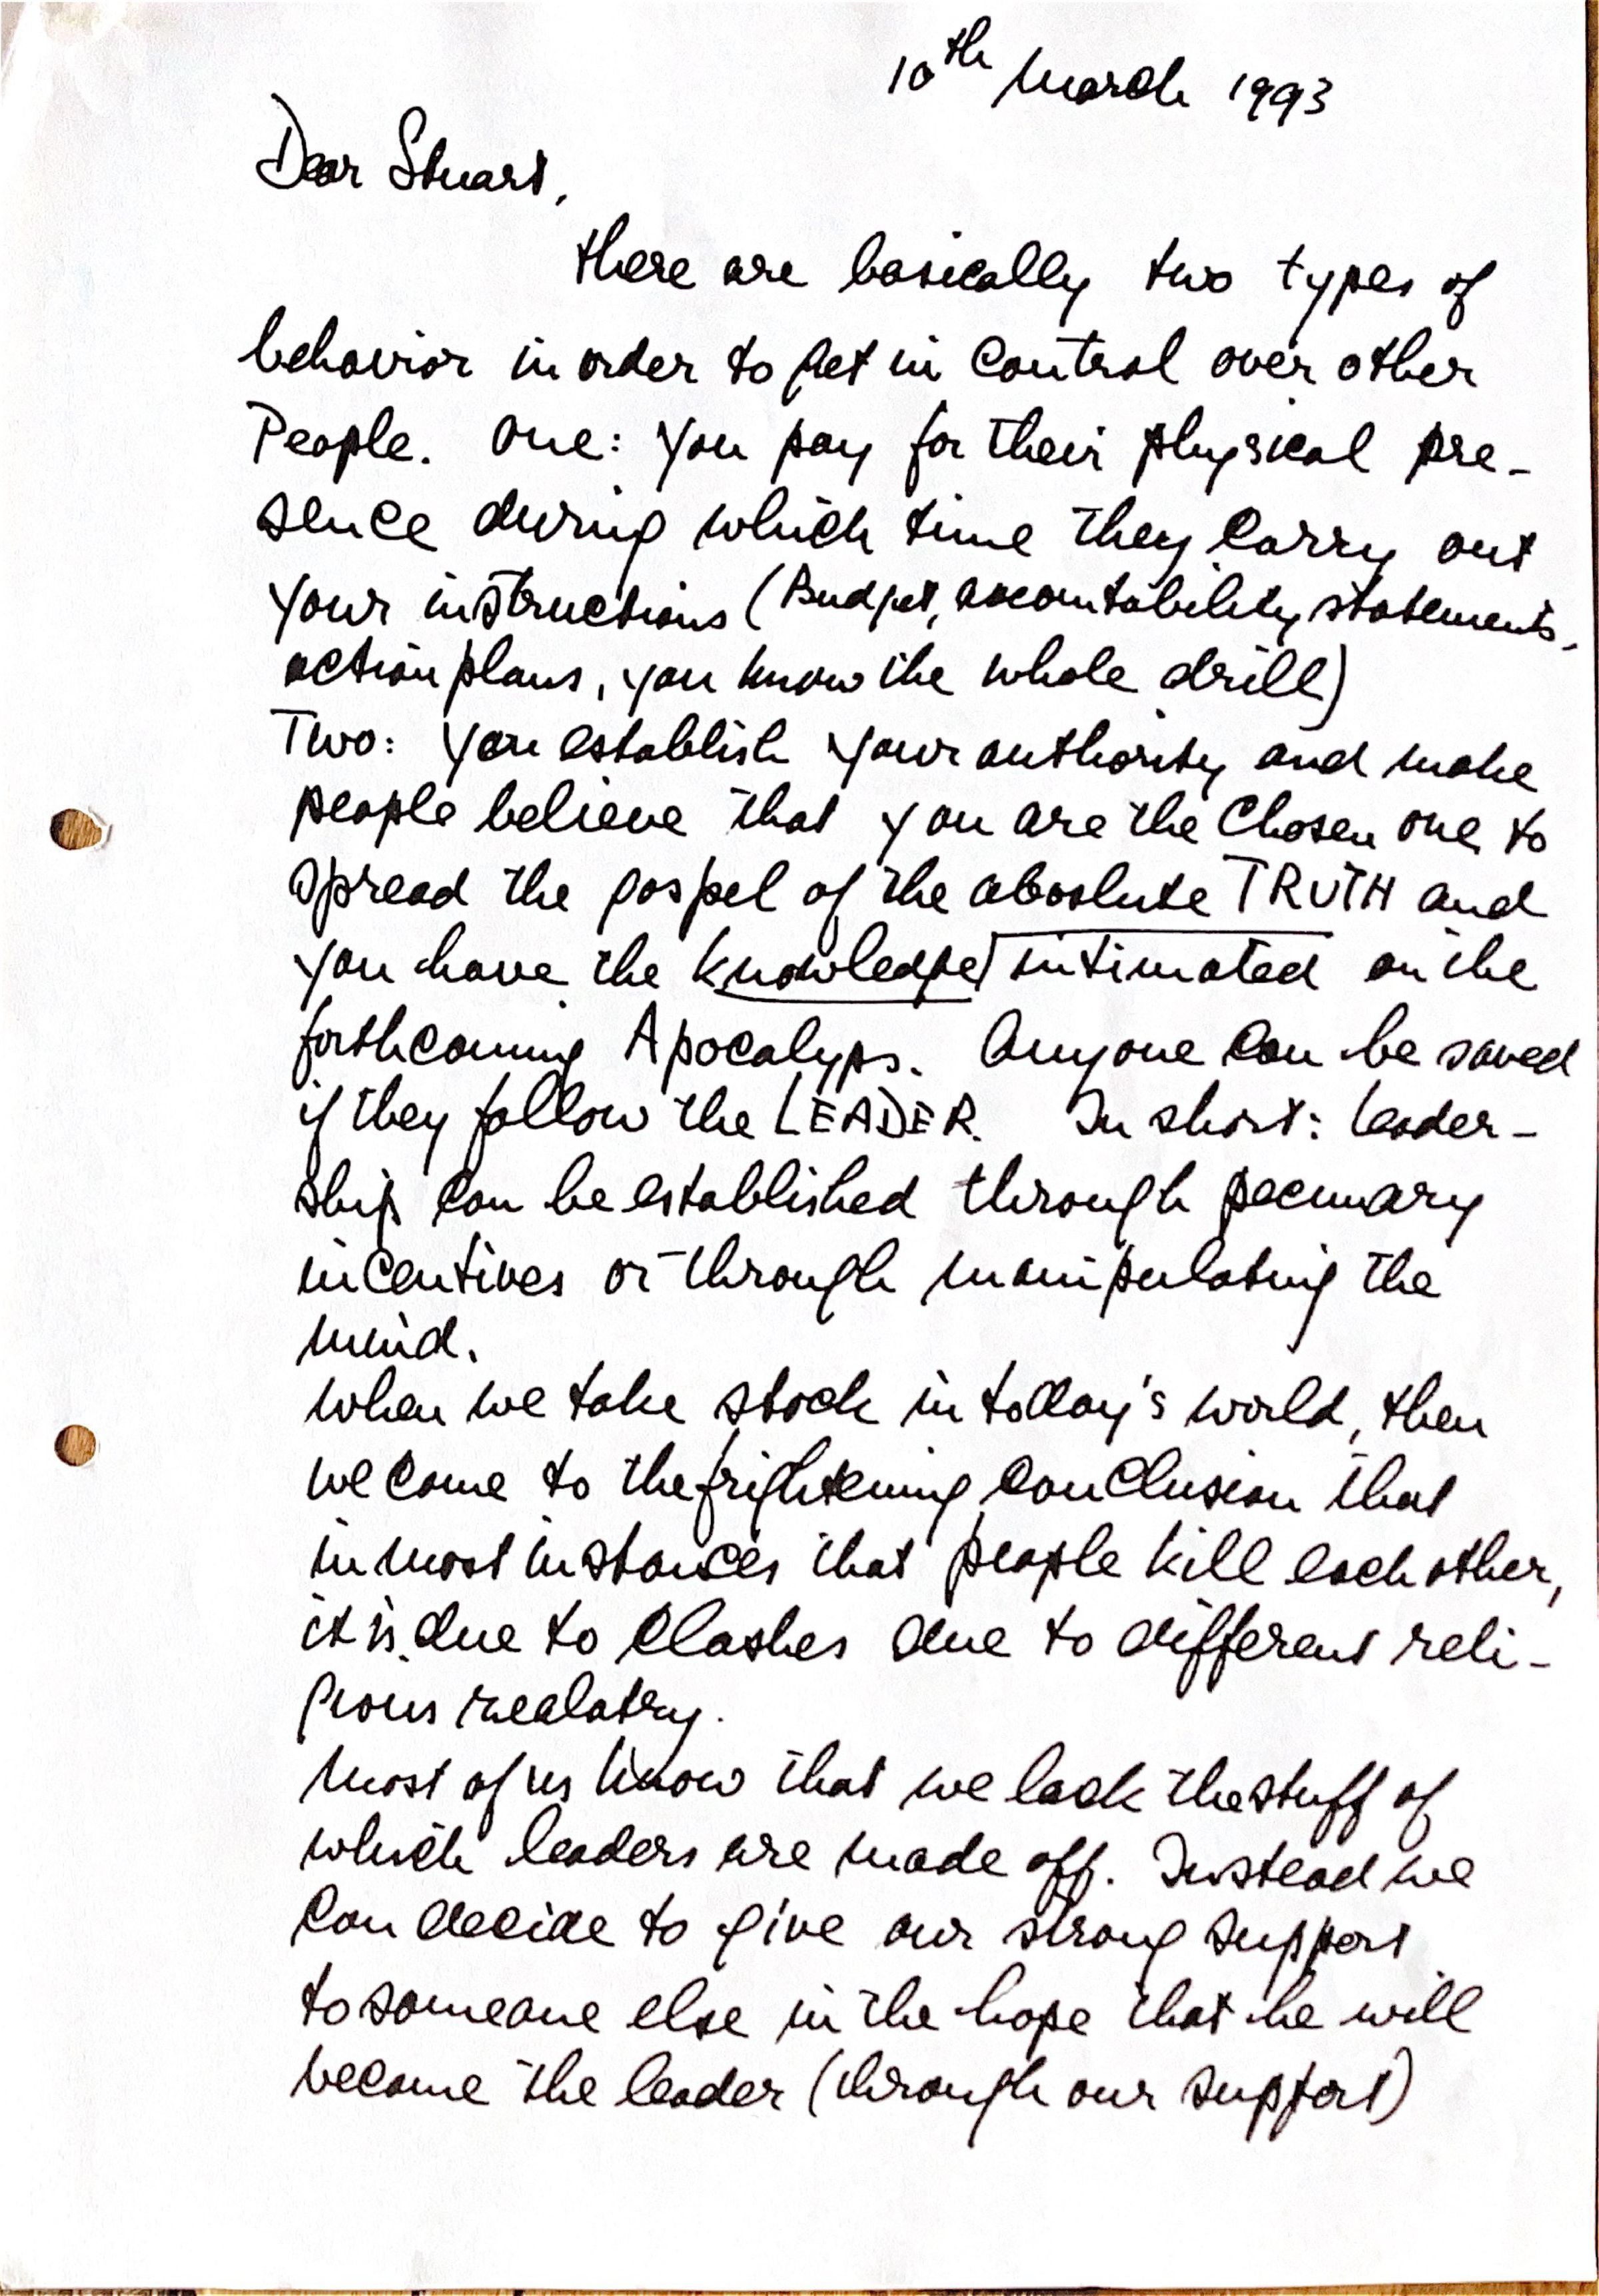 10th March 1993
Dear Stuart,
there are basically two types of
behavior in order to get in control over other
People. One: you pay for their physical pre-
sence during which time they carry out
your instructions (Budget, accountability statements,
action plans, you know the whole drill)
Two: you establish your authority and make
people believe that you are the Chosen one to
spread the gospel of the absolute TRUTH and
you have the knowledge intimated on the
forthcoming Apocalyps. Anyone can be saved
if they follow the LEADER. In short: leader-
ship can be established through pecunary
incentives or through manipulating the
mind.
When we take stock in today's world, then
we come to the frightening conclusion that
in most instances that people kill each other,
it is due to clashes due to different reli-
gious zealatry.
Most of us know that we lack the stuff of
which leaders are made off. Instead we
can decide to give our strong support
to someone else in the hope that he will
become the leader (through our support)